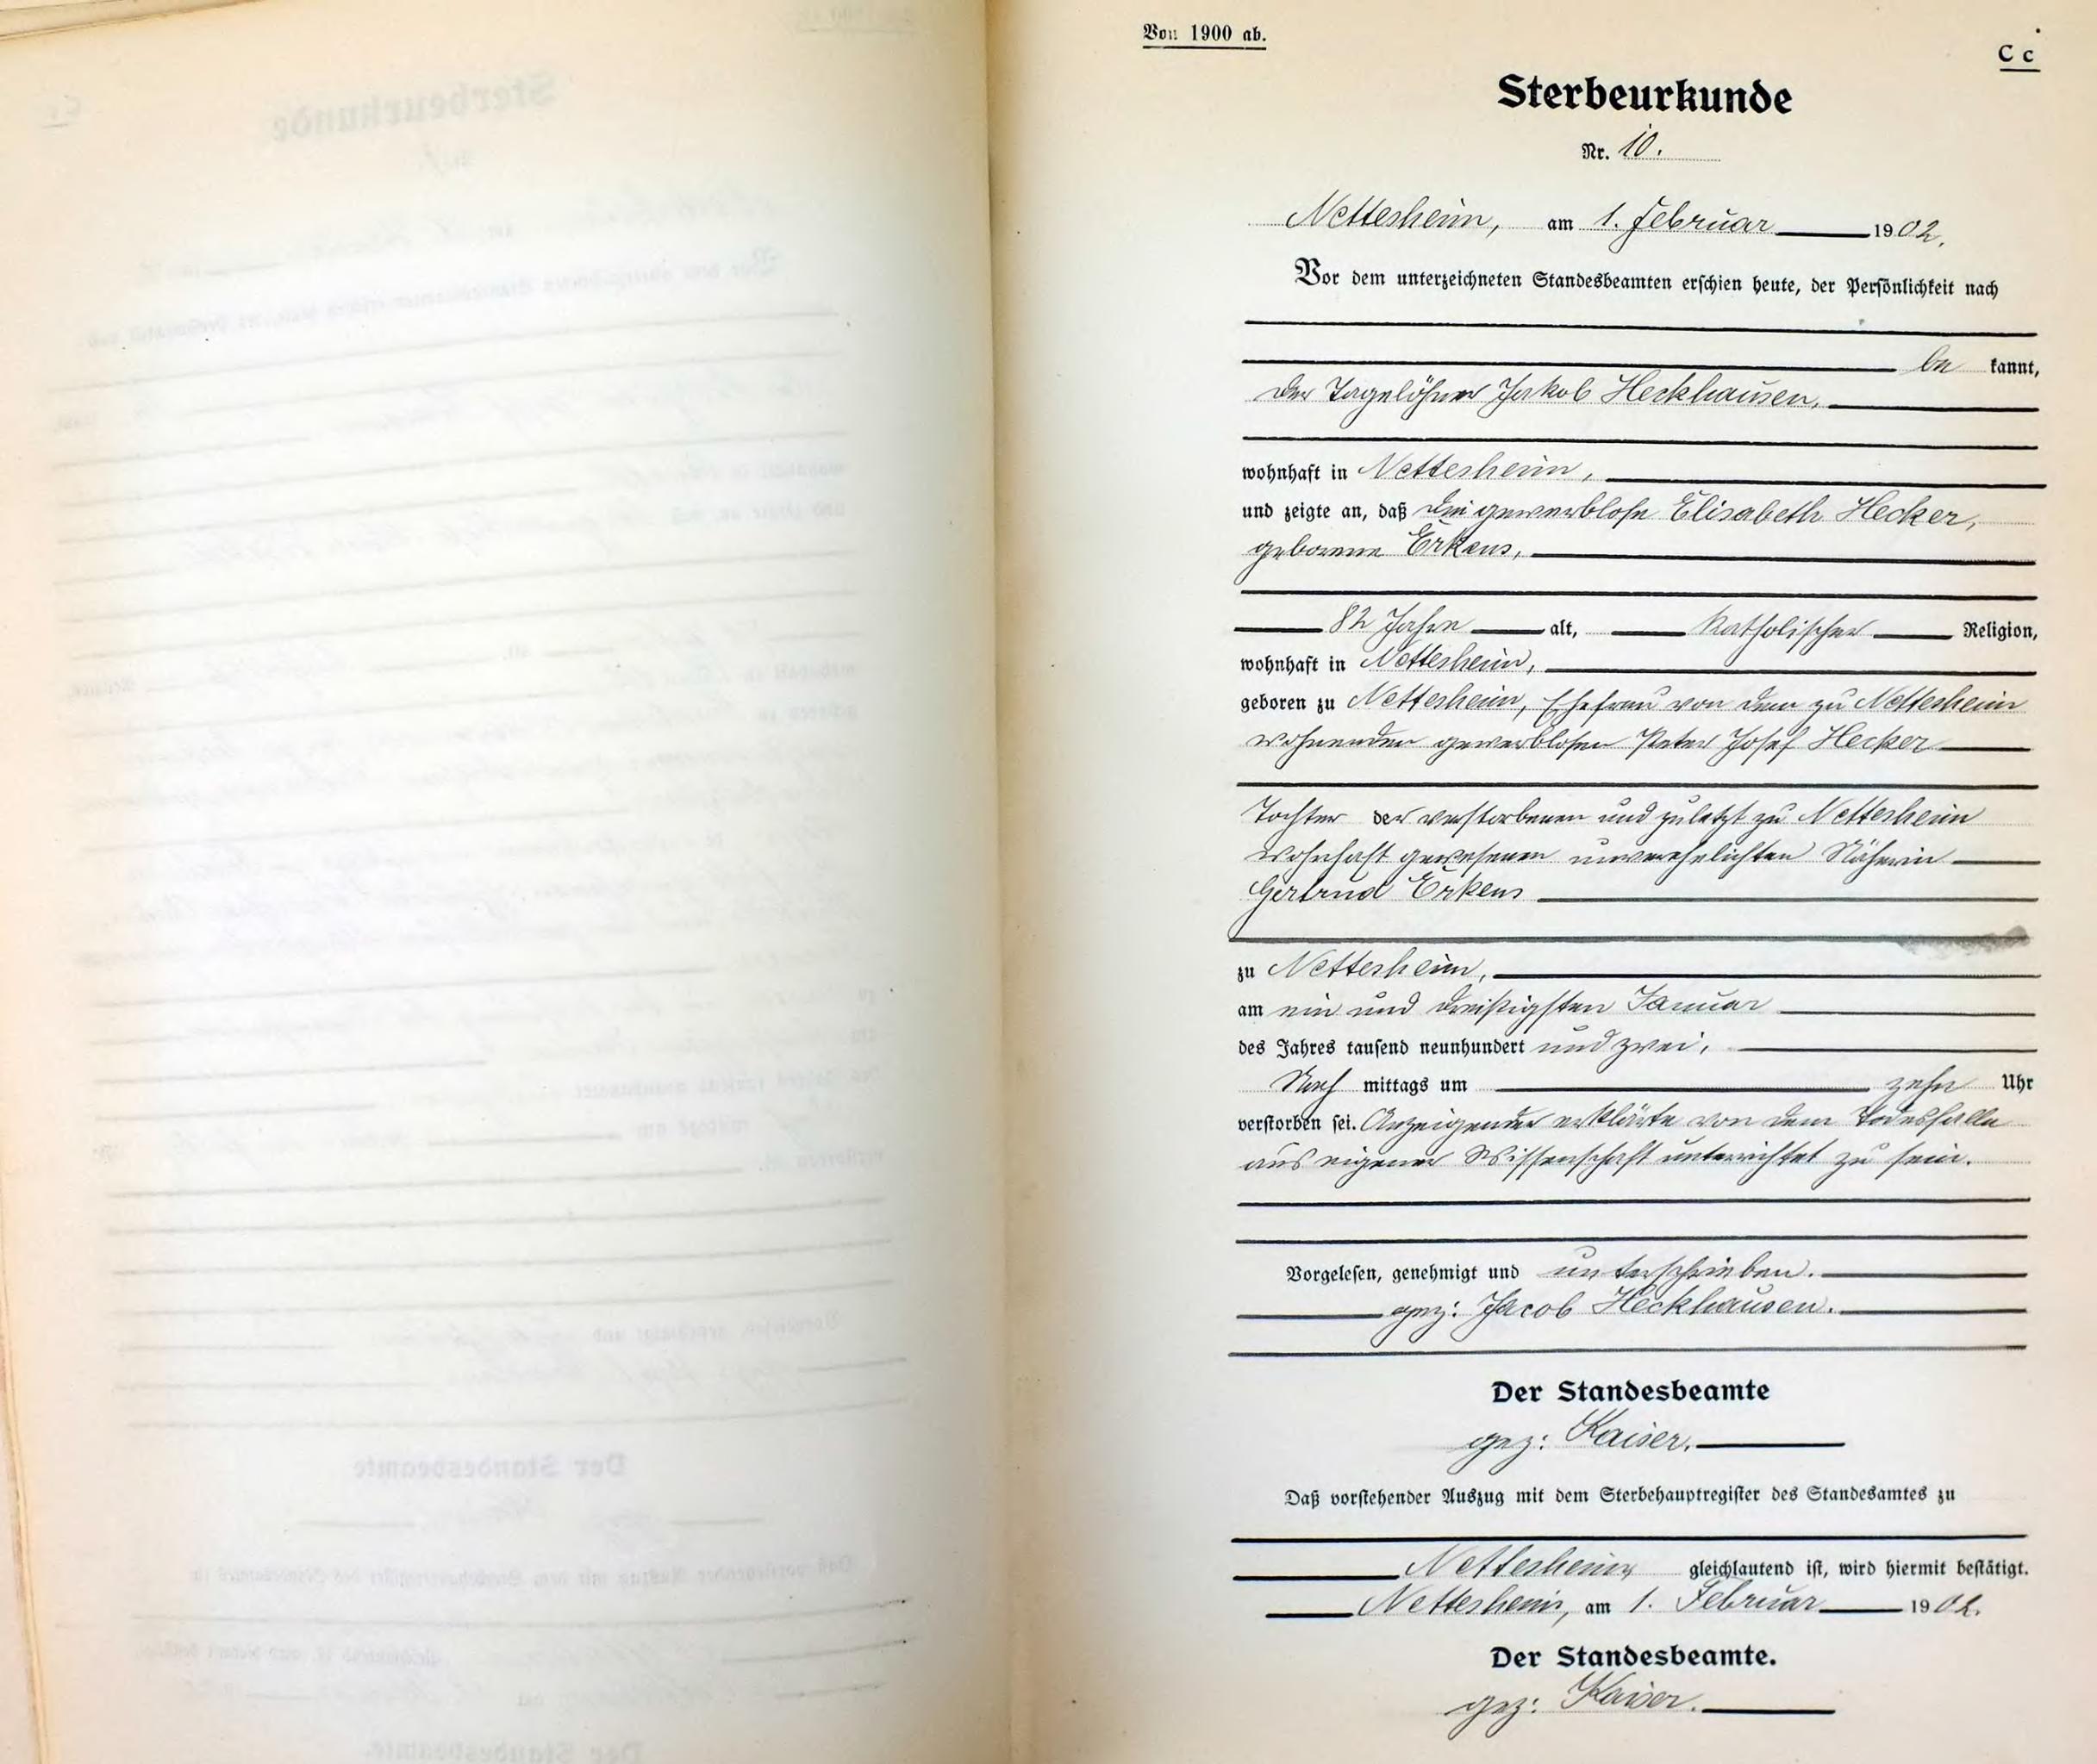 Von 1900 ab.
C c
Sterbeurkunde
Nr. 10.
Nettesheim, am 1. Februar 1902.
Vor dem unterzeichneten Standesbeamten erschien heute, der Persönlichkeit nach
be kannt,
der Tagelöhner Jakob Heckhausen,
wohnhaft in Nettesheim,
und zeigte an, daß die gewerblose Elisabeth Hecker,
geborene Erkens,
82 Jahre alt, katholischer Religion,
wohnhaft in Nettesheim,
geboren zu Nettesheim, Ehefrau von dem zu Nettesheim
wohnenden gewerblosen Peter Josef Hecker
Tochter der verstorbenen und zuletzt zu Nettesheim
wohnhaft gewesenen unverehelichten Näherin
Gertrud Erkens
zu Nettesheim,
am ein und dreißigsten Januar
des Jahres tausend neunhundert und zwei,
Nach mittags um zehn Uhr
verstorben sei. Anzeigender erklärte von dem Todesfalle
aus eigener Wissenschaft unterrichtet zu sein.
Vorgelesen, genehmigt und unterschrieben.
gez: Jacob Heckhausen.
Der Standesbeamte
gez: Kaiser.
Daß vorstehender Auszug mit dem Sterbehauptregister des Standesamtes zu
Nettesheim gleichlautend ist, wird hiermit bestätigt.
Nettesheim, am 1. Februar 1902.
Der Standesbeamte.
gez: Kaiser.